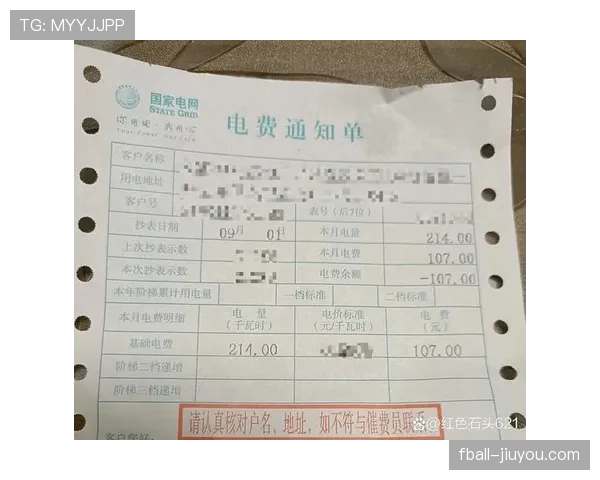 TG: MYYJJPP
国家电网
STATE GRID
你用电·我用心
Your Power Our Care
电费通知单
客户名称
用电地址
客户号 表号（后7位）
抄表日期 09月 01日 本月电量 214.00
上次抄表示数 本月电费 107.00
本次抄表示数 电费余额 -107.00
本年阶梯累计用电量 一档标准 二档标准
本月电费明细 电 量（千瓦时） 电价标准（元/千瓦时） 电 费（元）
基础电费 214.00 107.00
阶梯二档递增
阶梯三档递增
请认真核对户名、地址，如不符与催费员联系
@红色石头621
客户您好：
fball-jiuyou.com